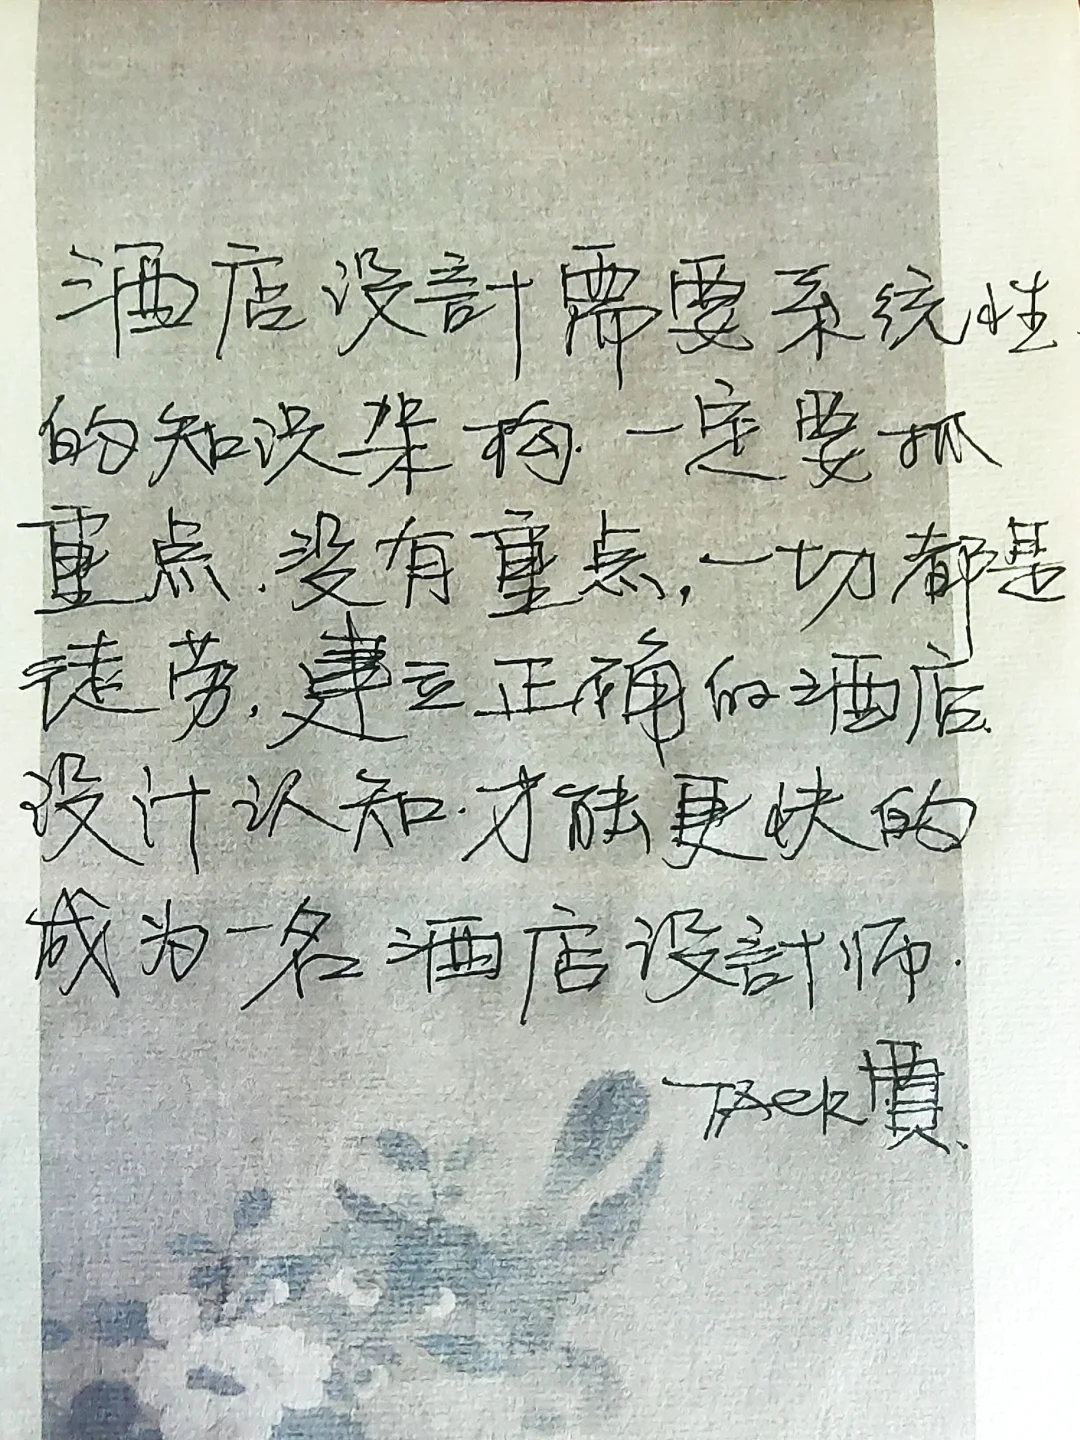 酒店设計需要系统性
的知识架构.一定要抓
重点.没有重点,一切都是
徒劳.建立正确的酒店
设计认知.才能更快的
成为一名酒店设計师.
JAck賈.